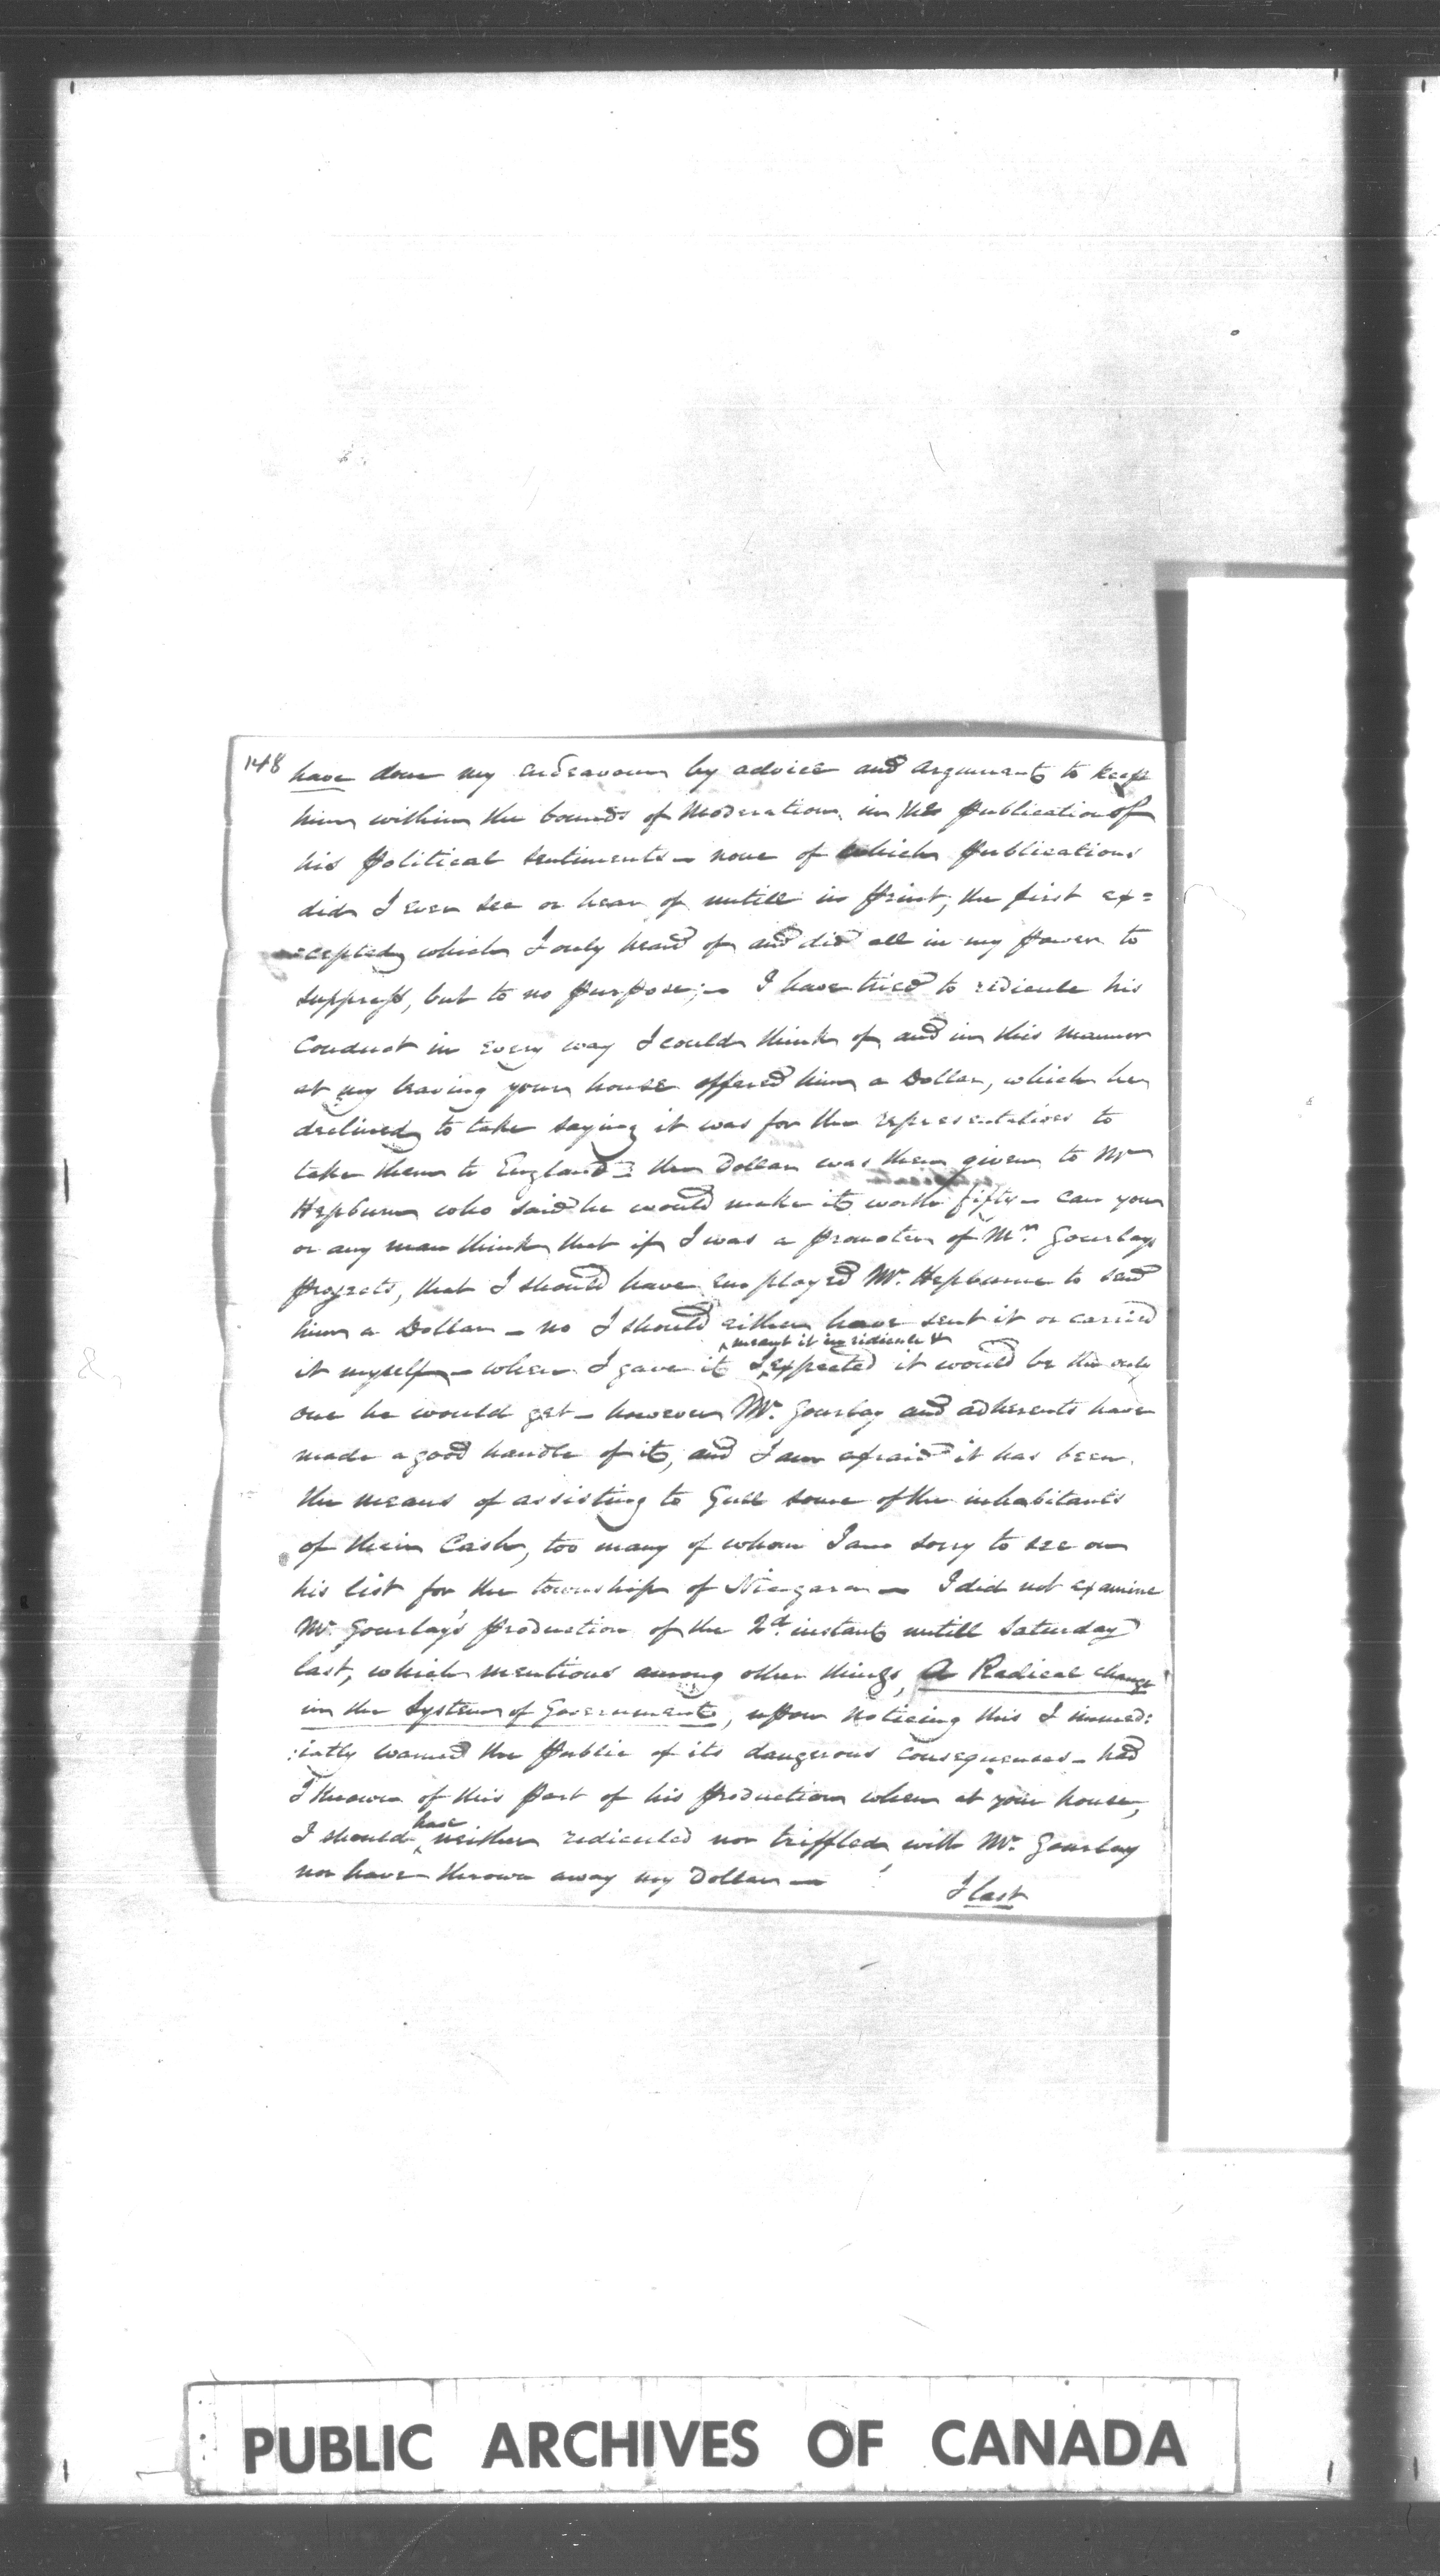 148
have done my endeavour by advice and arguments to keep
him within the bounds of Moderation in the publication of
his political sentiments – none of which publications
did I ever see or hear of untill in print, the first ex=
=cepted, which I only heard of and did all in my power to
suppress, but to no purpose; – I have tried to redicule his
Conduct in every way I could think of, and in this manner
at my leaving your house offered him a Dollar, which he
declined to take saying it was for the representatives to
take them to England – the Dollar was then given to Mr
Hepburn who said he would make it worth fifty – can you
or any man think that if I was a promoter of Mr. Gourlays
projects, that I should have employed Mr. Hepburne to send
him a Dollar – no I should either have sent it or carried
meant it in ridicule &
it myself – when I gave it I expected it would be the only
one he would get – however Mr. Gourlay and adherents have
made a good handle of it, and I am afraid it has been
the means of assisting to Gull some of the inhabitants
of their Cash, too many of whom I am sorry to see on
his list for the township of Niagara – I did not examine
Mr. Gourlay's production of the 2d. instant untill saturday
last, which mentions among other things, A Radical change
in the System of Government, upon noticing this I immed:
:iatly warned the public of its dangerous consequences – had
I known of this part of his production when at your house,
have
I should neither rediculed nor triffled with Mr. Gourlay
nor have thrown away my Dollar –
I last
PUBLIC ARCHIVES OF CANADA